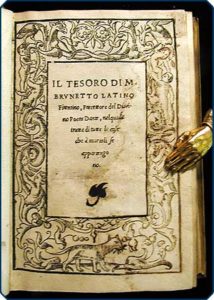 IL TESORO DI M.
BRVNETTO LATINO
Fiorentino, Precettore del Diui
no Poeta Dante, nel quale si
tratta di tutte le cose
che à mortali se
apparten
no.